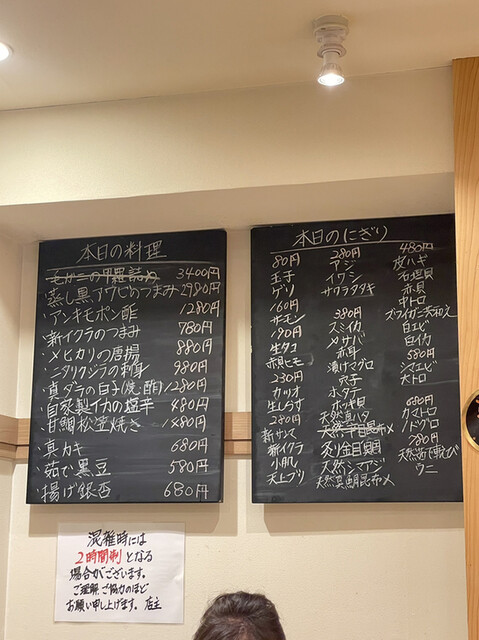 本日の料理
毛ガニの甲羅詰め 3400円
・蒸し黒アワビのつまみ 2980円
・アンキモポン酢 1280円
・新イクラのつまみ 780円
・メヒカリの唐揚 880円
・ニタリクジラの刺身 980円
・真ダラの白子(焼・酢) 1280円
・自家製イカの塩辛 480円
・甘鯛松笠焼き 1480円
・真カキ 680円
・茹で黒豆 580円
・揚げ銀杏 680円
本日のにぎり
80円
玉子
ゲソ
160円
サーモン
190円
生タコ
赤貝ヒモ
230円
カツオ
生しらす
280円
新サンマ
新イクラ
小肌
天上ブリ
280円
アジ
イワシ
サワラタタキ
380円
スミイカ
〆サバ
赤身
漬けマグロ
穴子
ホタテ
ホッキ貝
天然真ハタ
天然平目昆布〆
炙り金目鯛
天然シマアジ
天然真鯛昆布〆
480円
皮ハギ
石垣貝
赤貝
中トロ
ズワイガニ共和え
白エビ
白イカ
580円
シマエビ
大トロ
680円
カマトロ
ノドグロ
780円
天然活〆車エビ
ウニ
混雑時には
2時間制となる
場合がございます。
ご理解、ご協力のほど
お願い申し上げます。店主